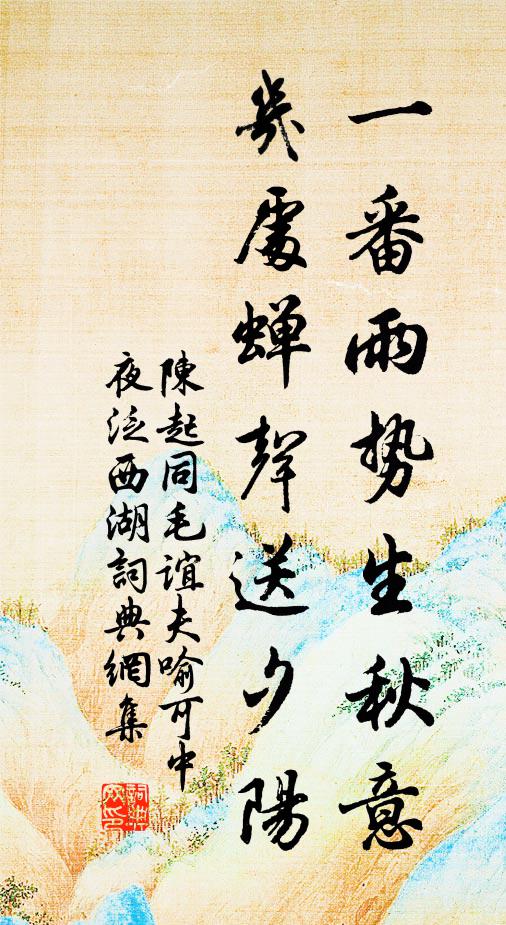 一番雨勢生秋意
幾處蟬聲送夕陽
陳起同毛誼夫喻可中
夜泛西湖詞典網集